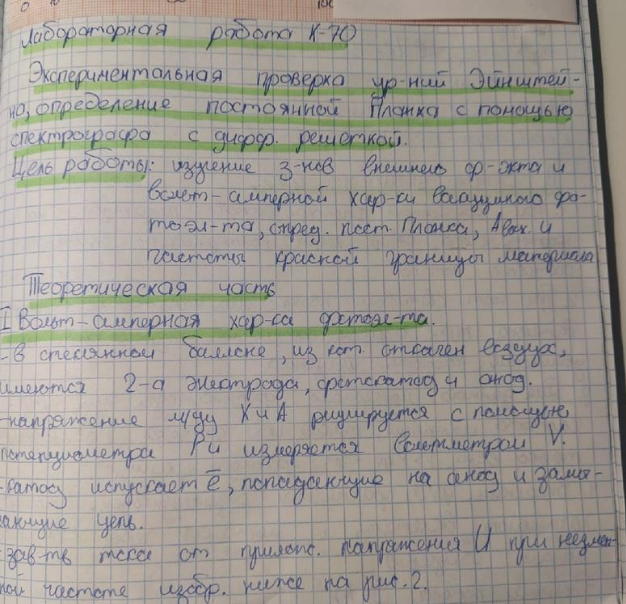 Лабораторная работа К-70
Экспериментальная проверка ур-ний Эйнштей-
на, определение постоянной Планка с помощью
спектрографа с дифф. решеткой.
Цель работы: изучение з-нов внешнего ф-экта и
вольт-амперной хар-ки вакуумного фо-
тоэл-та, опред. пост. Планка, Aвых. и
частоты красной границы материала
Теоретическая часть
I Вольт-амперная хар-ка фотоэл-та.
-в стеклянном баллоне, из кот. откачен воздух,
имеются 2-а электрода, фотокатод и анод.
-напряжение м/ду К и А регулируется с помощью
потенциометра P и измеряется вольтметром V.
-катод испускает e̅, попадающие на анод и замы-
кающие цепь.
-зав-ть тока от прилож. напряжения U при неизмен-
ной частоте изобр. ниже на рис. 2.